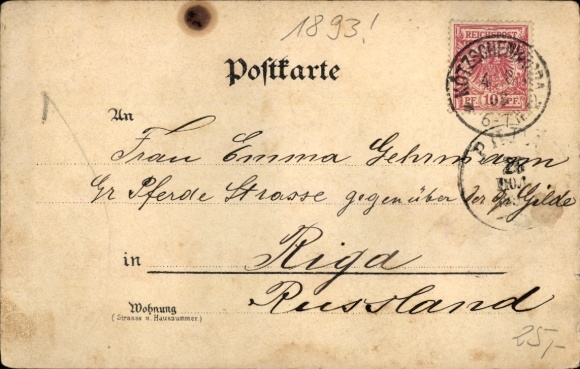 1893!
REICHSPOST
10 PF 10 PF
KÖTZSCHENBRODA
6-7 N
Postkarte
An
Frau Emma Gehrmann
Gr Pferde Strasse gegenüber der gr. Gilde
in Riga
Russland
Wohnung
(Strasse u. Hausnummer.)
25,-